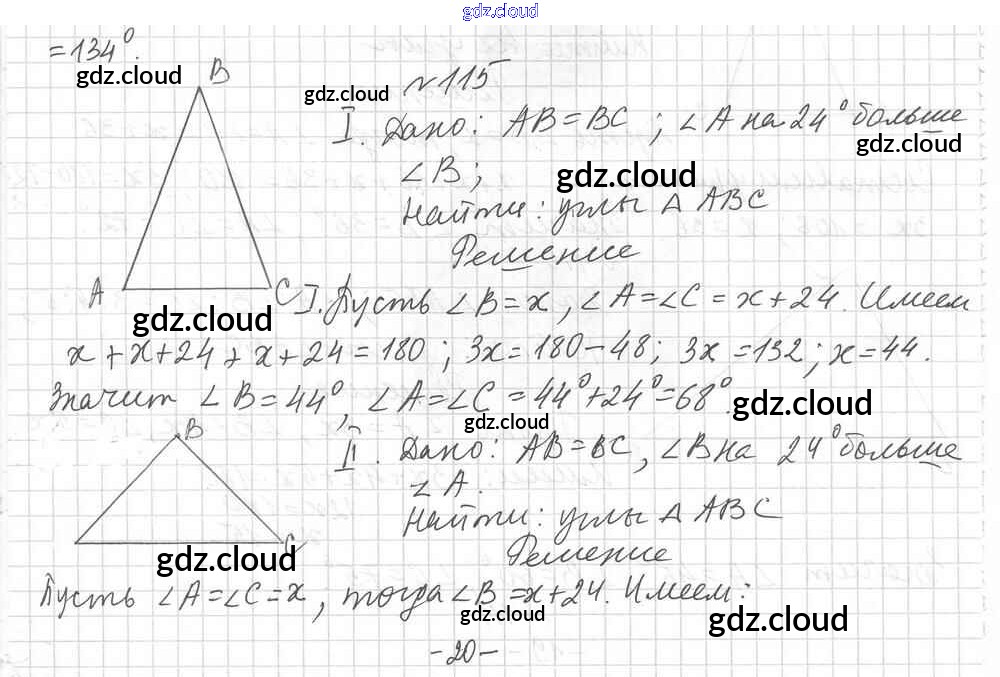 gdz.cloud
= 134°.
gdz.cloud
B
№ 115
gdz.cloud
I. Дано: AB = BC ; ∠A на 24° больше
gdz.cloud
∠B;
gdz.cloud
Найти: углы Δ ABC
Решение
A
C
I. Пусть ∠B = x, ∠A = ∠C = x + 24. Имеем
gdz.cloud
x + x + 24 + x + 24 = 180 ; 3x = 180 – 48; 3x = 132; x = 44.
Значит ∠B = 44°, ∠A = ∠C = 44° + 24° = 68°.
gdz.cloud
gdz.cloud
B
II. Дано: AB = BC, ∠B на 24° больше
∠A.
Найти: углы Δ ABC
C
gdz.cloud
Решение
Пусть ∠A = ∠C = x, тогда ∠B = x + 24. Имеем:
gdz.cloud
gdz.cloud
- 20 -